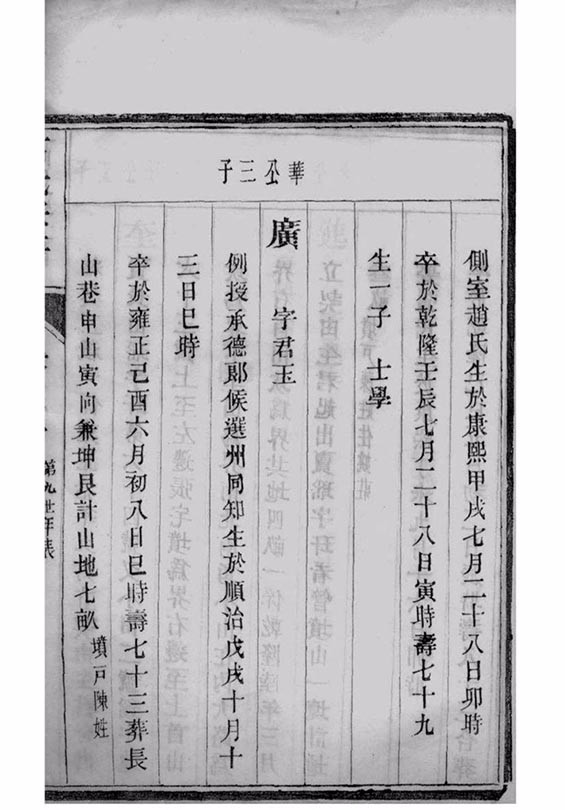 華公三子
側室趙氏生於康熙甲戌七月二十八日卯時
卒於乾隆壬辰七月二十八日寅時壽七十九
生一子 士學
廣 字君玉
例授承德郎候選州同知生於順治戊戌十月十
三日巳時
卒於雍正己酉六月初八日巳時壽七十三葬長
山巷申山寅向兼坤艮計山地七畝 墳戶陳姓
第九世年表